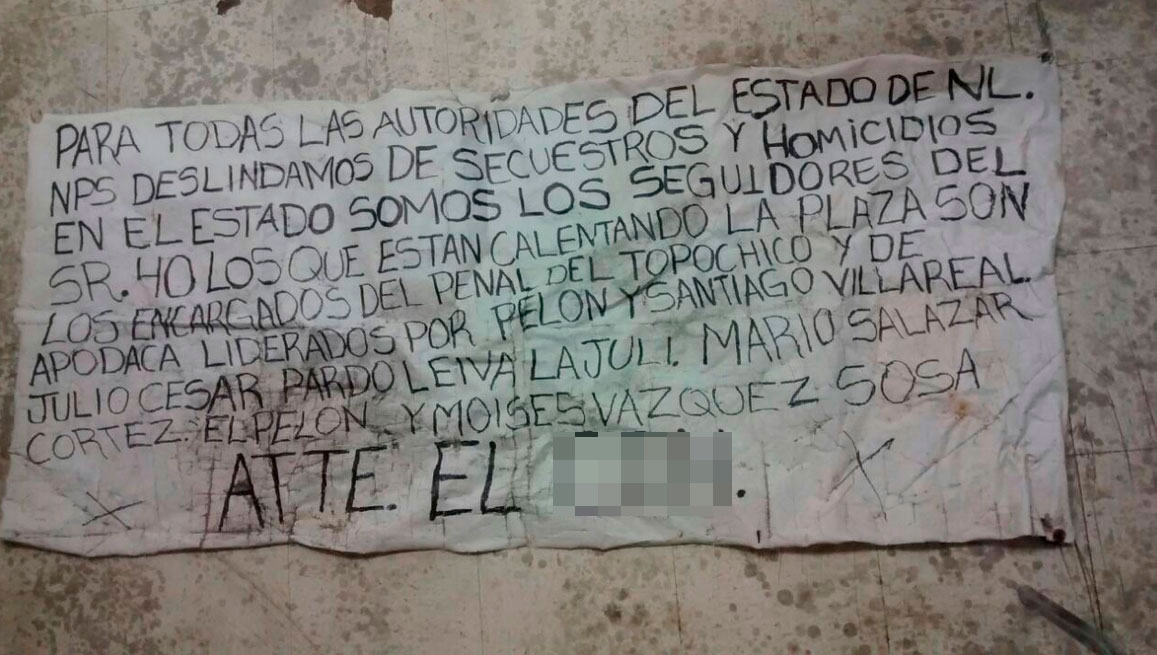 PARA TODAS LAS AUTORIDADES DEL ESTADO DE NL.
NPS DESLINDAMOS DE SECUESTROS Y HOMICIDIOS
EN EL ESTADO SOMOS LOS SEGUIDORES DEL
SR. 40 LOS QUE ESTAN CALENTANDO LA PLAZA SON
LOS ENCARGADOS DEL PENAL DEL TOPOCHICO Y DE
APODACA LIDERADOS POR PELON Y SANTIAGO VILLAREAL.
JULIO CESAR PARDO LEIVA LA JULI. MARIO SALAZAR
CORTEZ. EL PELON Y MOISES VAZQUEZ SOSA
ATTE. EL